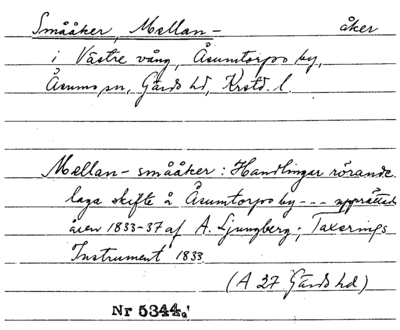 Smååker, Mellan- åker
i Västre vång, Åsumtorps by,
Åsums sn, Gärds hd, Krstd. l.
Mellan-smååker: Handlingar rörande
laga skifte å Åsumtorps by --- upprättad
åren 1833-37 af A. Ljungberg; Taxerings
Instrument 1833
(A 27 Gärds hd)
Nr 5344.